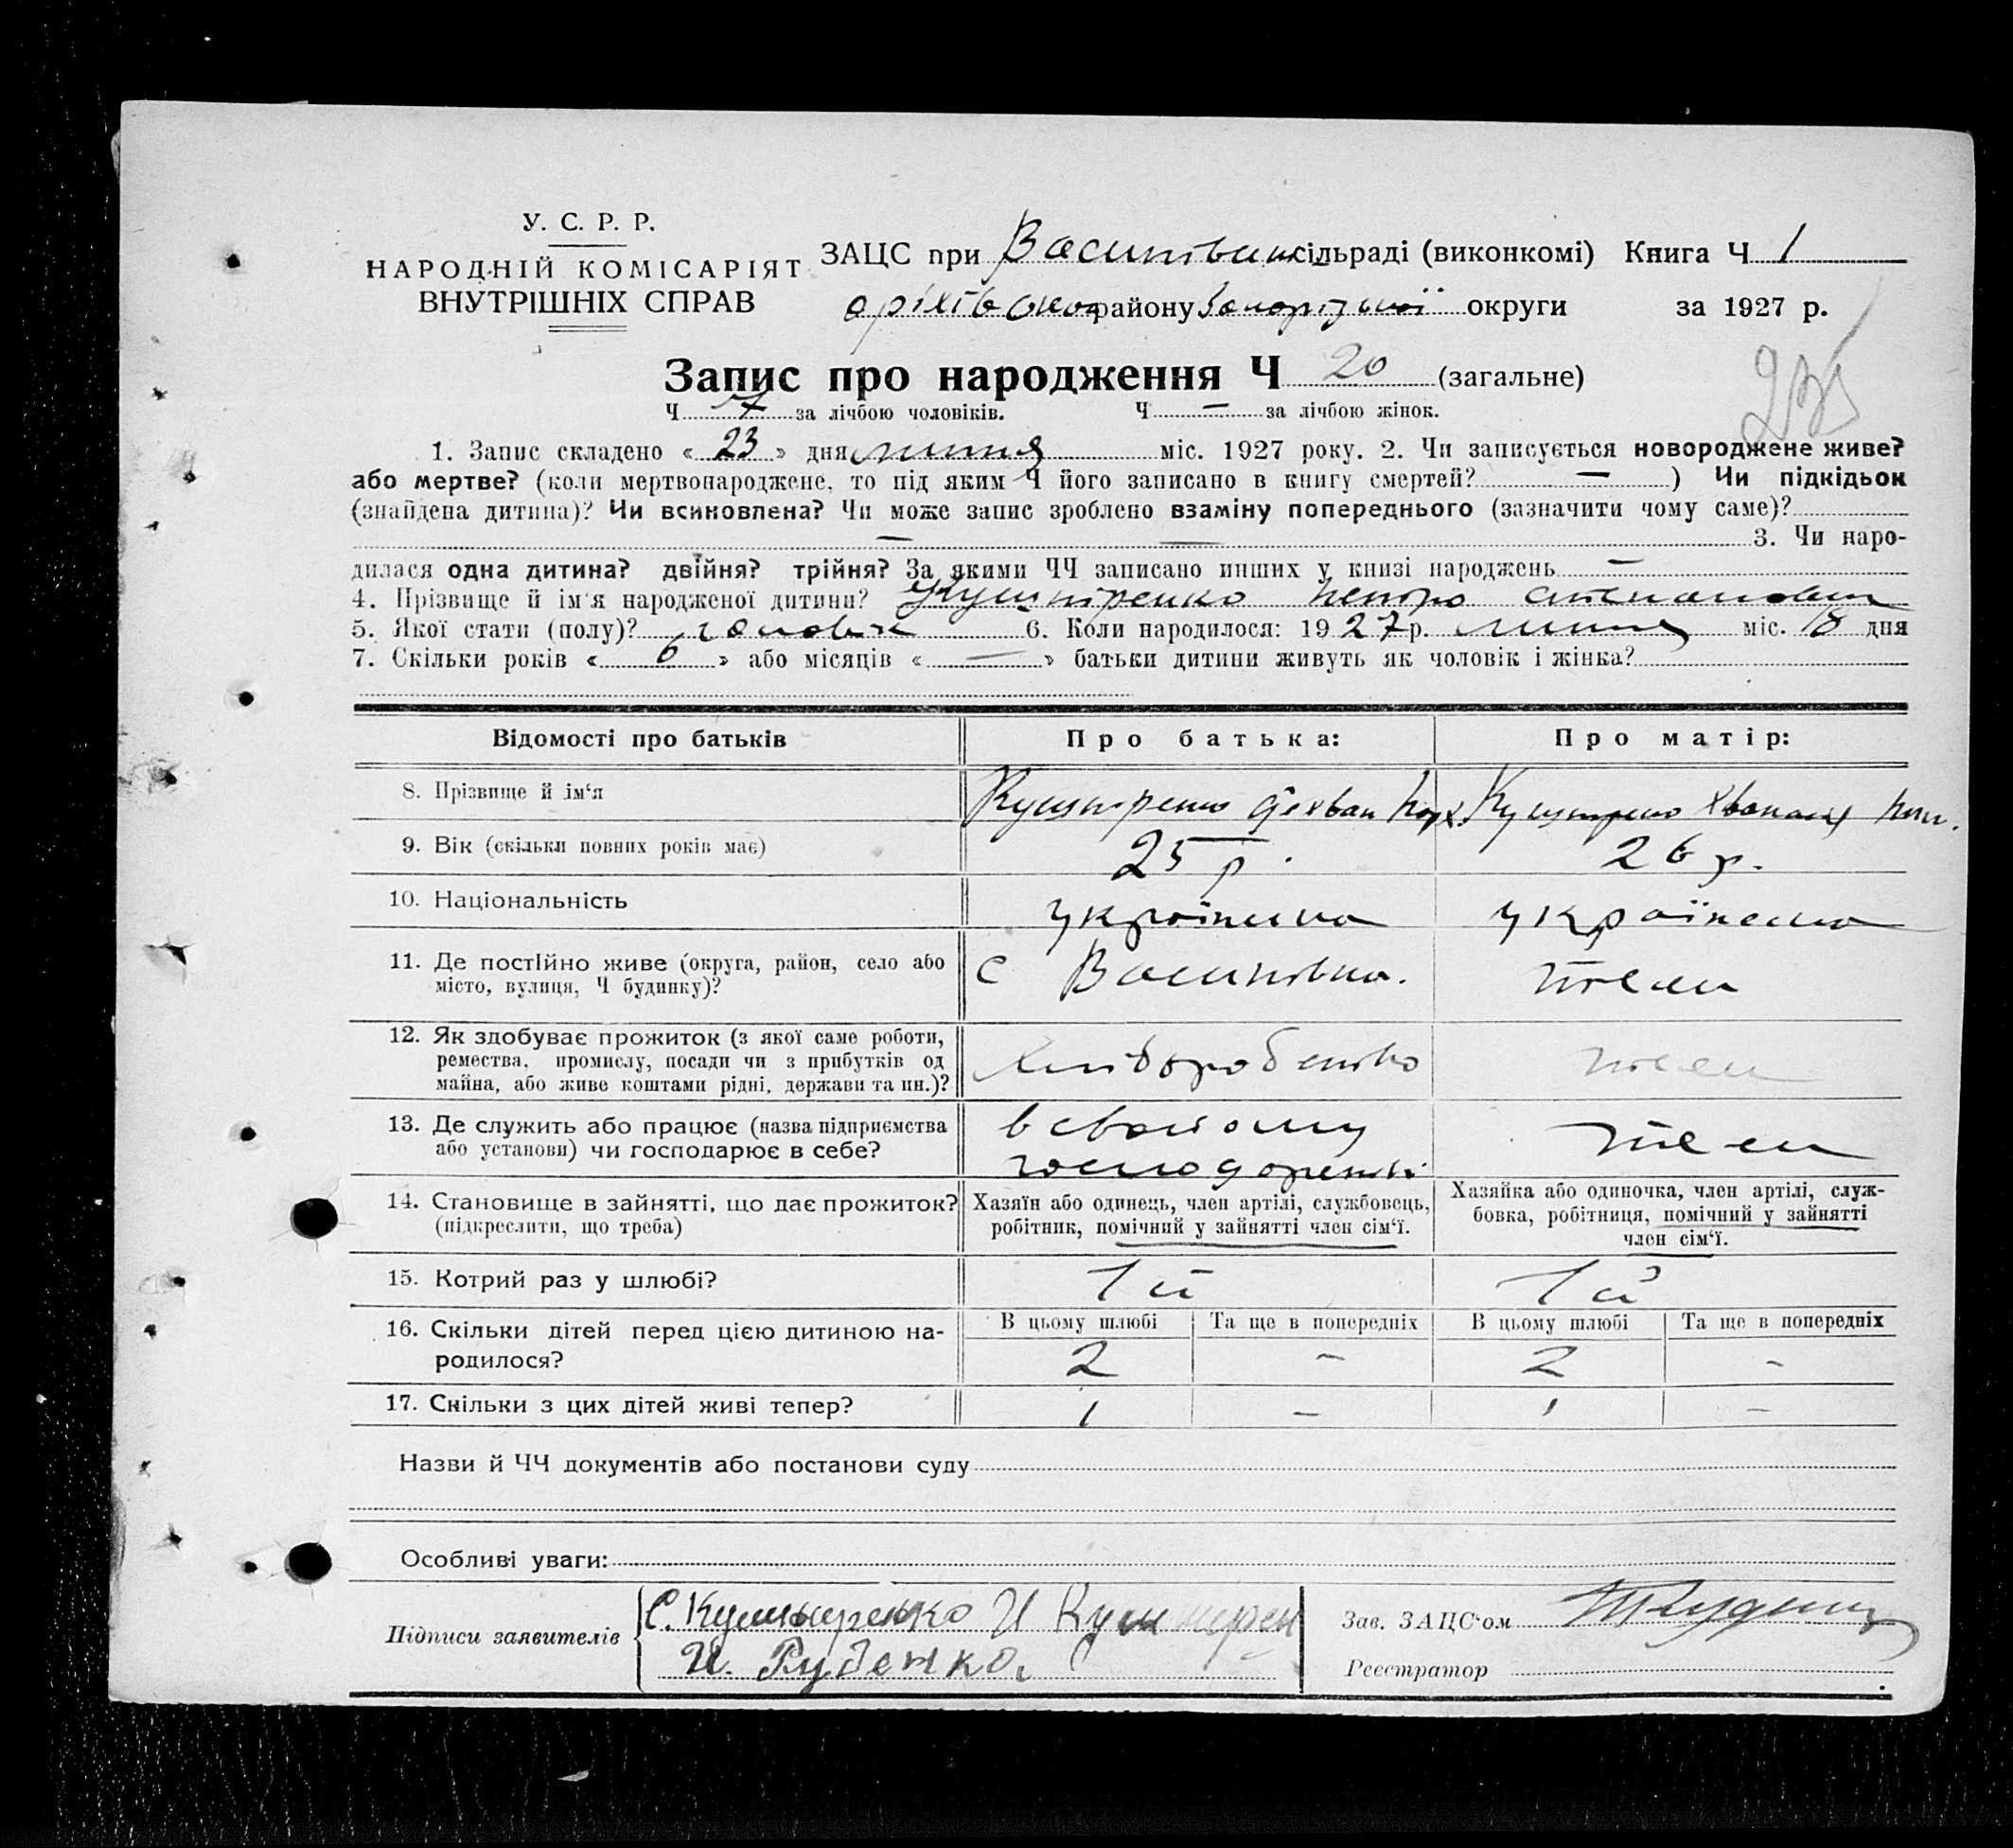 У. С. Р. Р.
НАРОДНІЙ КОМІСАРІЯТ
ВНУТРІШНІХ СПРАВ
ЗАЦС при сільраді (виконкомі) Книга Ч 1
району Запорізької округи за 1927 р.
Запис про народження Ч 20 (загальне)
Ч 7 за лічбою чоловіків. Ч — за лічбою жінок.
1. Запис складено « 23 » дня липня міс. 1927 року. 2. Чи записується новороджене живе?
або мертве? (коли мертвонароджене, то під яким Ч його записано в книгу смертей? — ) Чи підкідьок
(знайдена дитина)? Чи всиновлена? Чи може запис зроблено взаміну попереднього (зазначити чому саме)?
— — 3. Чи наро-
дилася одна дитина? двійня? трійня? За якими ЧЧ записано инших у книзі народжень —
4. Прізвище й ім'я народженої дитини? Петро Степанович
5. Якої стати (полу)? чоловік 6. Коли народилося: 1927 р. липня міс. 18 дня
7. Скільки років « 6 » або місяців « — » батьки дитини живуть як чоловік і жінка?
Відомості про батьків Про батька: Про матір:
8. Прізвище й ім'я
9. Вік (скільки повних років має) 25 р. 26 р.
10. Національність українка
11. Де постійно живе (округа, район, село або
місто, вулиця, Ч будинку)? с
12. Як здобуває прожиток (з якої саме роботи,
ремества, промислу, посади чи з прибутків од
майна, або живе коштами рідні, держави та ин.)? хліборобство
13. Де служить або працює (назва підприємства
або установи) чи господарює в себе? в свойому
14. Становище в зайнятті, що дає прожиток?
(підкреслити, що треба)
Хазяїн або одинець, член артілі, службовець,
робітник, помічний у зайнятті член сім'ї.
Хазяйка або одиночка, член артілі, служ-
бовка, робітниця, помічний у зайнятті
член сім'ї.
15. Котрий раз у шлюбі? 1й 1й
16. Скільки дітей перед цією дитиною на-
родилося?
В цьому шлюбі Та ще в попередніх В цьому шлюбі Та ще в попередніх
2 - 2 -
17. Скільки з цих дітей живі тепер? 1 — 1 —
Назви й ЧЧ документів або постанови суду
Особливі уваги:
Підписи заявителів
И. Рубенко.
Зав. ЗАЦС'ом
Реєстратор